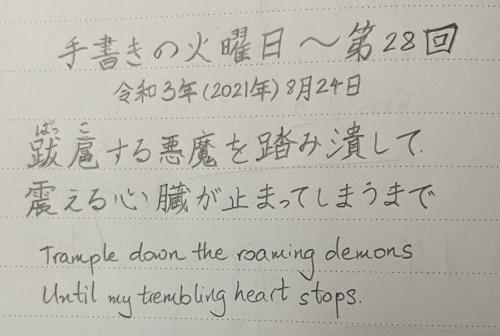 手書きの火曜日～第28回
令和3年(2021年)8月24日
ばっこ
跋扈する悪魔を踏み潰して
震える心臓が止まってしまうまで
Trample down the roaming demons
Until my trembling heart stops.